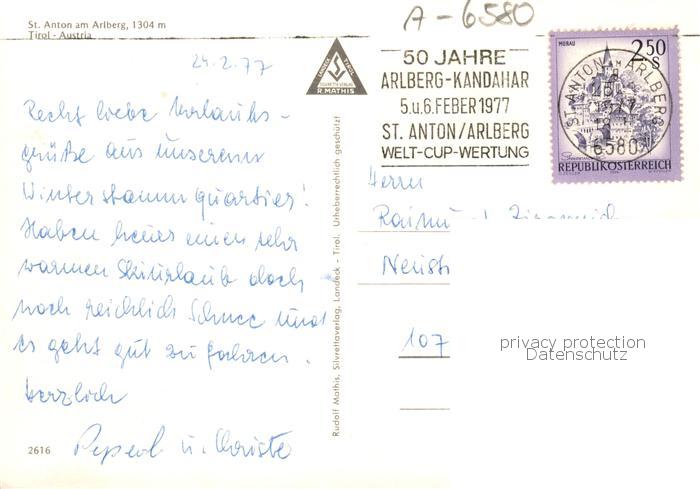 St. Anton am Arlberg, 1304 m
Tirol - Austria
A-6580
24.2.77
Recht liebe Urlaubs-
grüße aus unserem
Winterstammquartier!
Haben heuer einen sehr
warmen Skiurlaub doch
noch reichlich Schnee und
es geht gut zu fahren.
Herzlich
u. Christe
2616
LANDECK TIROL
R. MATHIS
Rudolf Mathis, Silvrettaverlag, Landeck - Tirol. Urheberrechtlich geschützt!
50 JAHRE
ARLBERG-KANDAHAR
5.u.6.FEBER 1977
ST. ANTON/ARLBERG
WELT-CUP-WERTUNG
MURAU
2.50
S
ST. ANTON AM ARLBERG
6580
REPUBLIK ÖSTERREICH
Herrn
107
privacy protection
Datenschutz